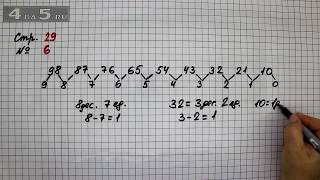 4 a 5 .ru
Стр. 29
№ 6
98 87 76 65 54 43 32 21 10
9 8 7 6 5 4 3 2 1 0
8дес. 7 ед. 32 = 3дес. 2 ед. 10=1д
8-7=1 3-2=1